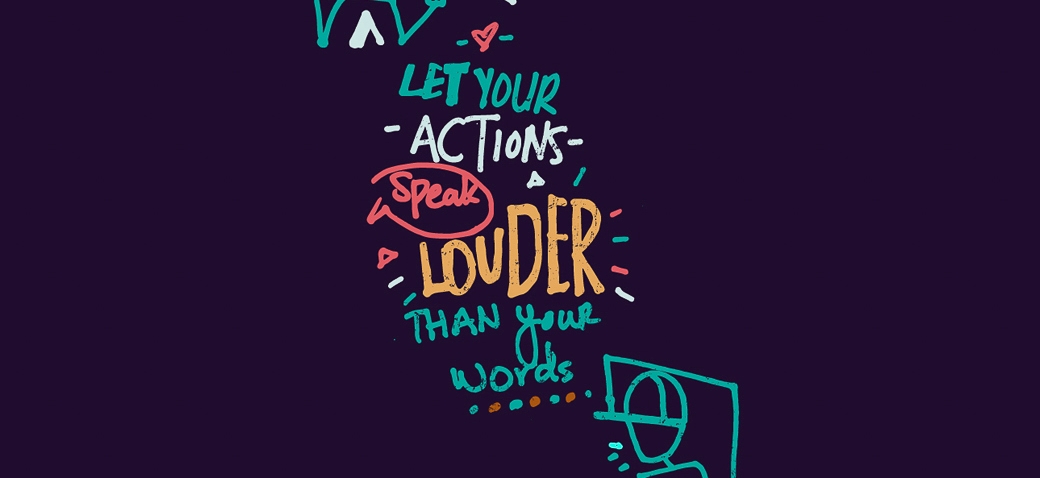 LET YOUR
ACTIONS
speak
LOUDER
THAN your
words